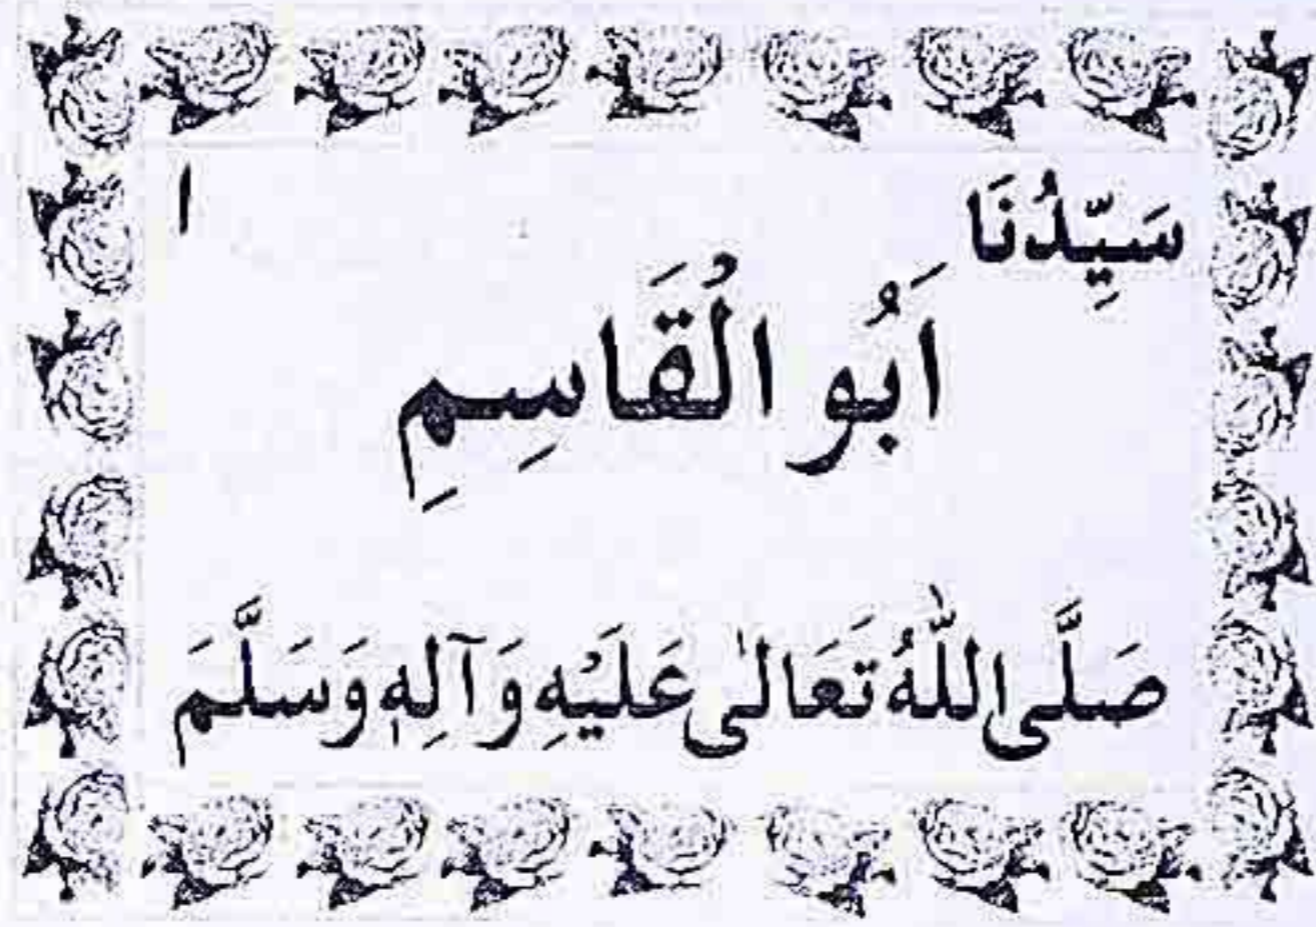 سَیِّدُنَا ۱
اَبُو الْقَاسِمِ
صَلَّی اللّٰهُ تَعَالٰی عَلَیْهِ وَآلِهٖ وَسَلَّمَ